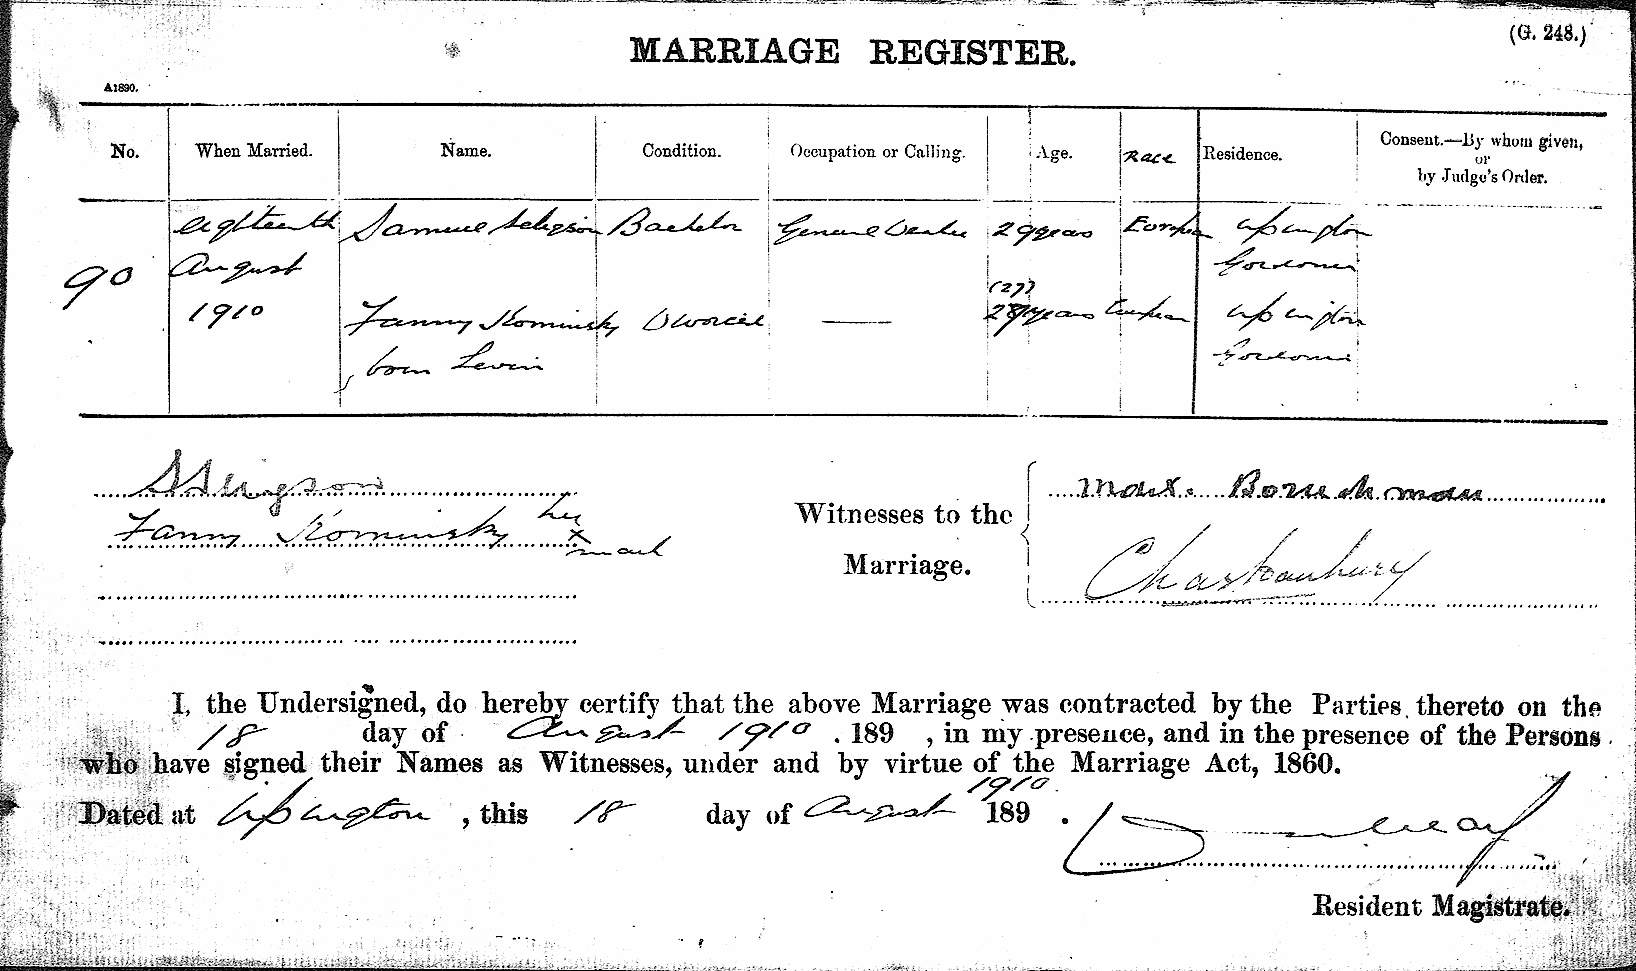 (G. 248.)
MARRIAGE REGISTER.
A1890.
No. When Married. Name. Condition. Occupation or Calling. Age. Race Residence. Consent.—By whom given, or by Judge's Order.
90
eighteenth Samuel Seligson Bachelor General Dealer 29 years European Upington
August Gordonia
(27)
1910 Fanny Kominsky Divorced — years European Upington
born Levin Gordonia
S Seligson
Fanny Kominsky her x mark
Witnesses to the Marriage.
Max. Boruchman
Chas
I, the Undersigned, do hereby certify that the above Marriage was contracted by the Parties thereto on the
18 day of August 1910 . 189 , in my presence, and in the presence of the Persons
who have signed their Names as Witnesses, under and by virtue of the Marriage Act, 1860.
1910
Dated at Upington, this 18 day of August 189 .
Resident Magistrate.